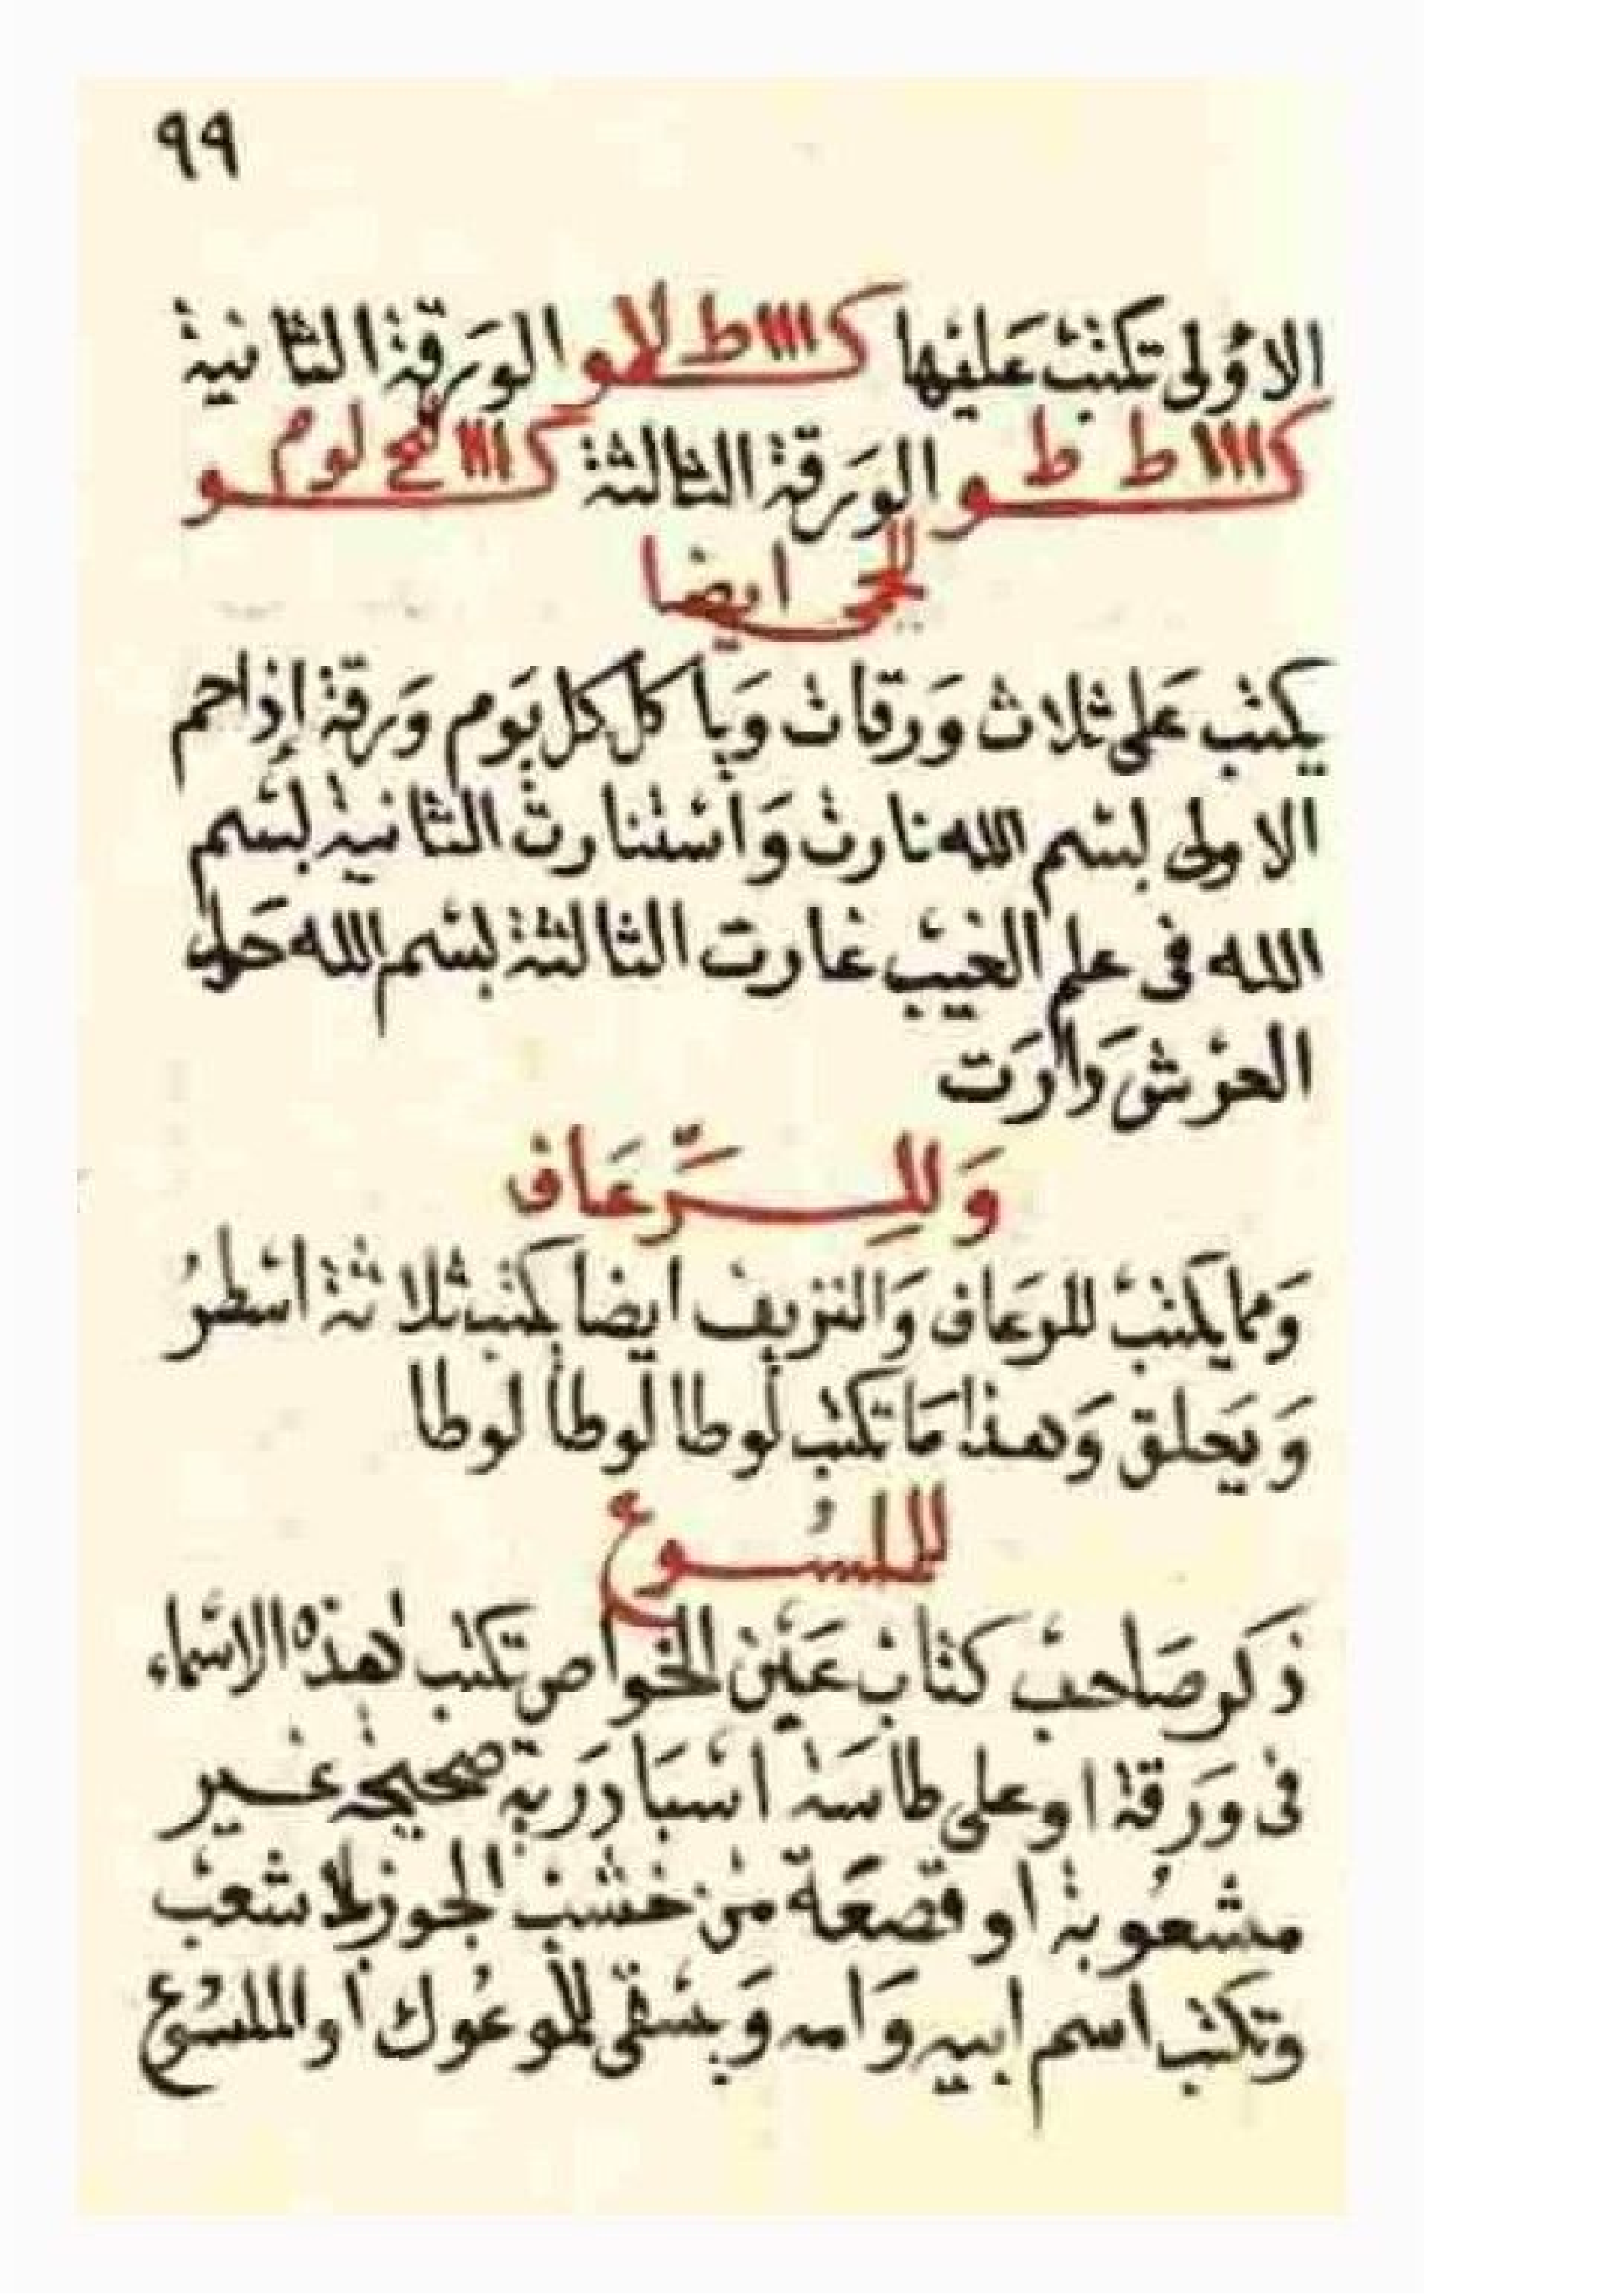 ٩٩
الاولى تكتب عليها الورقة الثانية
الورقة الثالثة
للحمى ايضا
يكتب على ثلاث ورقات وياكل كل يوم ورقة اذا حم
الاولى بسم الله نارت واستنارت الثانية بسم
الله فى علم الغيب غارت الثالثة بسم الله حول
العرش دارت
وَللرِّعَاف
ومما يكتب للرعاف والنزيف ايضا يكتب ثلاثة اسطر
ويعلق وهذا ما تكتب لوطا لوطا لوطا
للملسوع
ذكر صاحب كتاب عين الخواص تكتب هذه الاسماء
فى ورقة او على طاسة اسبادرية صحيحة غير
مشعوبة او قصعة من خشب الجوز بلا شعب
وتكتب اسم ابيه وامه ويسقى للموعوك او الملسوع